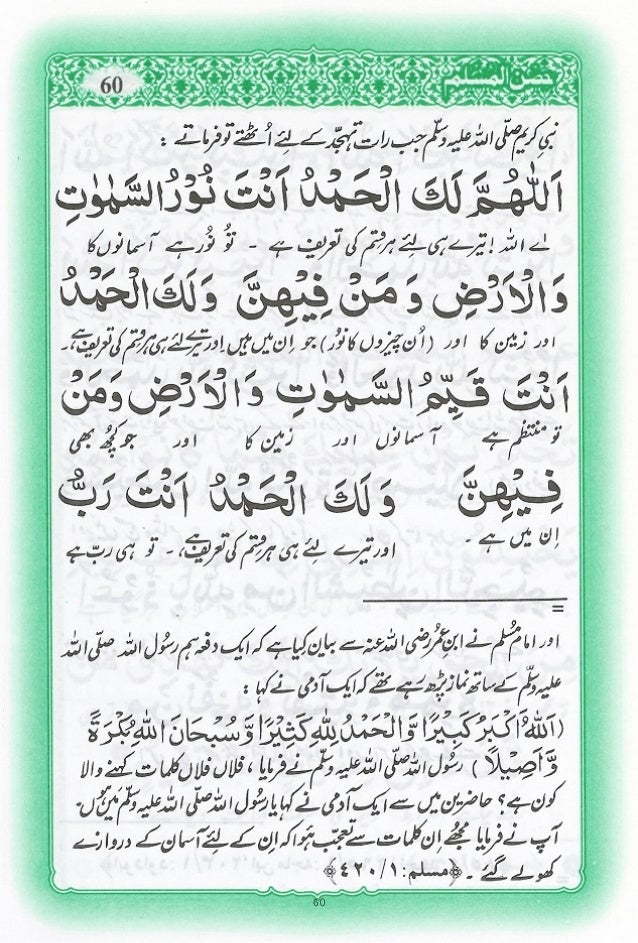 60
حصن المسلم
نبی کریم صلّی اللہ علیہ وسلّم جب رات تہجّد کے لئے اُٹھتے تو فرماتے :
اَللّٰهُمَّ لَكَ الْحَمْدُ اَنْتَ نُوْرُ السَّمٰوٰتِ
اے اللہ ! تیرے ہی لئے ہر قسم کی تعریف ہے - تُو نُور ہے آسمانوں کا
وَالْاَرْضِ وَمَنْ فِيْهِنَّ وَلَكَ الْحَمْدُ
اور زمین کا اور (اُن چیزوں کا نُور) جو اِن میں ہیں اور تیرے لئے ہی ہر قسم کی تعریف ہے۔
اَنْتَ قَيِّمُ السَّمٰوٰتِ وَالْاَرْضِ وَمَنْ
تو منتظم ہے آسمانوں اور زمین کا اور جو کچھ بھی
فِيْهِنَّ وَلَكَ الْحَمْدُ اَنْتَ رَبُّ
اِن میں ہے ۔ اور تیرے لئے ہی ہر قسم کی تعریف ہے ، - تو ہی ربّ ہے
=
اور امام مُسلم نے ابنِ عمُر رضی اللہ عنہ سے بیان کیا ہے کہ ایک دفعہ ہم رسُول اللہ صلّی اللہ
علیہ وسلّم کے ساتھ نماز پڑھ رہے تھے کہ ایک آدمی نے کہا :
(اَللهُ اَكْبَرُ كَبِيْرًا وَّالْحَمْدُ لِلّٰهِ كَثِيْرًا وَّسُبْحَانَ اللهِ بُكْرَةً
وَّاَصِيْلًا) رسُول اللہ صلّی اللہ علیہ وسلّم نے فرمایا ، فلاں فلاں کلمات کہنے والا
کون ہے؟ حاضرین میں سے ایک آدمی نے کہا یا رسُول اللہ صلّی اللہ علیہ وسلّم مَیں ہُوں۔
آپ نے فرمایا مجھے اِن کلمات سے تعجّب ہوا کہ اِن کے لئے آسمان کے دروازے
کھولے گئے ۔ ﴿مسلم: ۱/ ۴۲۰﴾
60